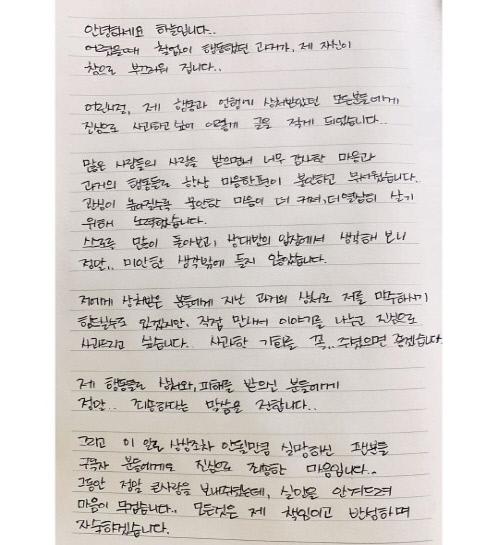 안녕하세요 하늘입니다..
어렸을때 철없이 행동했던 과거가, 제 자신이
참으로 부끄러워 집니다..
어린시절, 제 행동과 언행에 상처받았던 모든분들에게
진심으로 사과하고싶어 이렇게 글을 적게 되었습니다..
많은 사람들의 사랑을 받으면서 너무 감사한 마음과
과거의 행동들로 항상 마음한편이 불안하고 무서웠습니다.
관심이 높아질수록 불안한 마음이 더 커져, 더 열심히 살기
위해 노력했습니다.
스스로 많이 돌아보고, 상대방의 입장에서 생각해 보니
정말.. 미안한 생각밖에 들지 않았습니다.
저에게 상처받은 분들에게 지난 과거의 상처로 저를 마주하시기
힘드실수도 있겠지만, 직접 만나서 이야기를 나누고 진심으로
사과드리고 싶습니다.. 사과할 기회를 꼭.. 주셨으면 좋겠습니다
제 행동들로 상처와, 피해를 받으신 분들에게
정말.. 죄송하다는 말씀을 전합니다..
그리고 이 일로 상상조차 안될만큼 실망하신 팬분들
구독자 분들에게도 진심으로 죄송한 마음입니다..
그동안 정말 큰사랑을 보내주셨는데, 실망을 안겨드려
마음이 무겁습니다.. 모든것은 제 책임이고 반성하며
자숙하겠습니다.